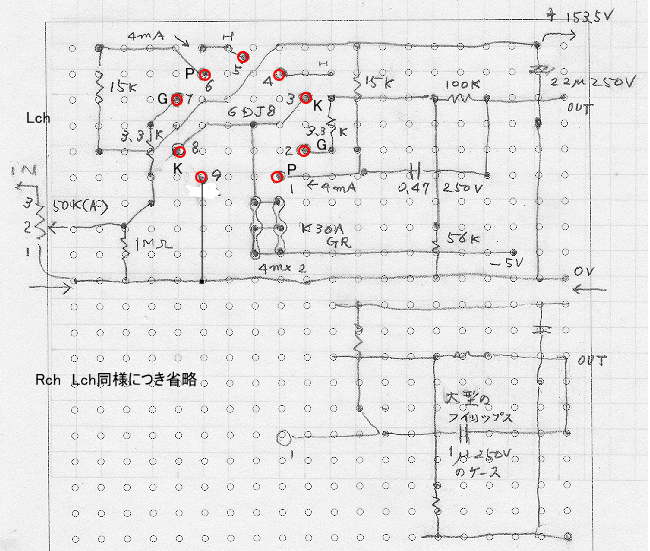 + 153.5V
4mA
H
5
P
6
4
H
15K
G
7
3
K
15K
100K
22μ 250V
OUT
Lch
6DJ8
3.3K
3.3K
8
K
2
G
9
P
1
←4mA
0.47
250V
IN
3
50K(A)
2
1
1MΩ
K30A
GR
56K
-5V
4m×2
0V
Rch Lch同様につき省略
OUT
大型の
フィリップス
1μ250V
のケース
1